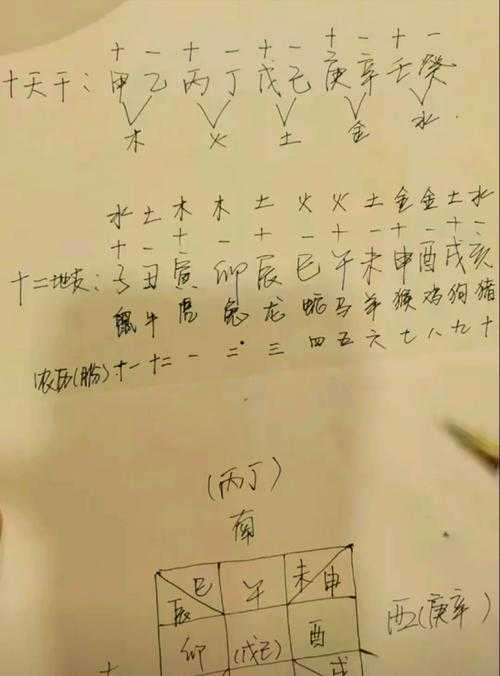 + - + - + - + - + -
十天干: 甲乙 丙丁 戊己 庚辛 壬癸
木 火 土 金 水
水 土 木 木 土 火 火 土 金 金 土 水
+ - + - + - + - + - + -
十二地支: 子 丑 寅 卯 辰 巳 午 未 申 酉 戌 亥
鼠 牛 虎 兔 龙 蛇 马 羊 猴 鸡 狗 猪
农历(月份): 十一 十二 一 二 三 四 五 六 七 八 九 十
(丙丁)
南
辰 巳 午 未 申
卯 (戊己) 酉 西(庚辛)
戌